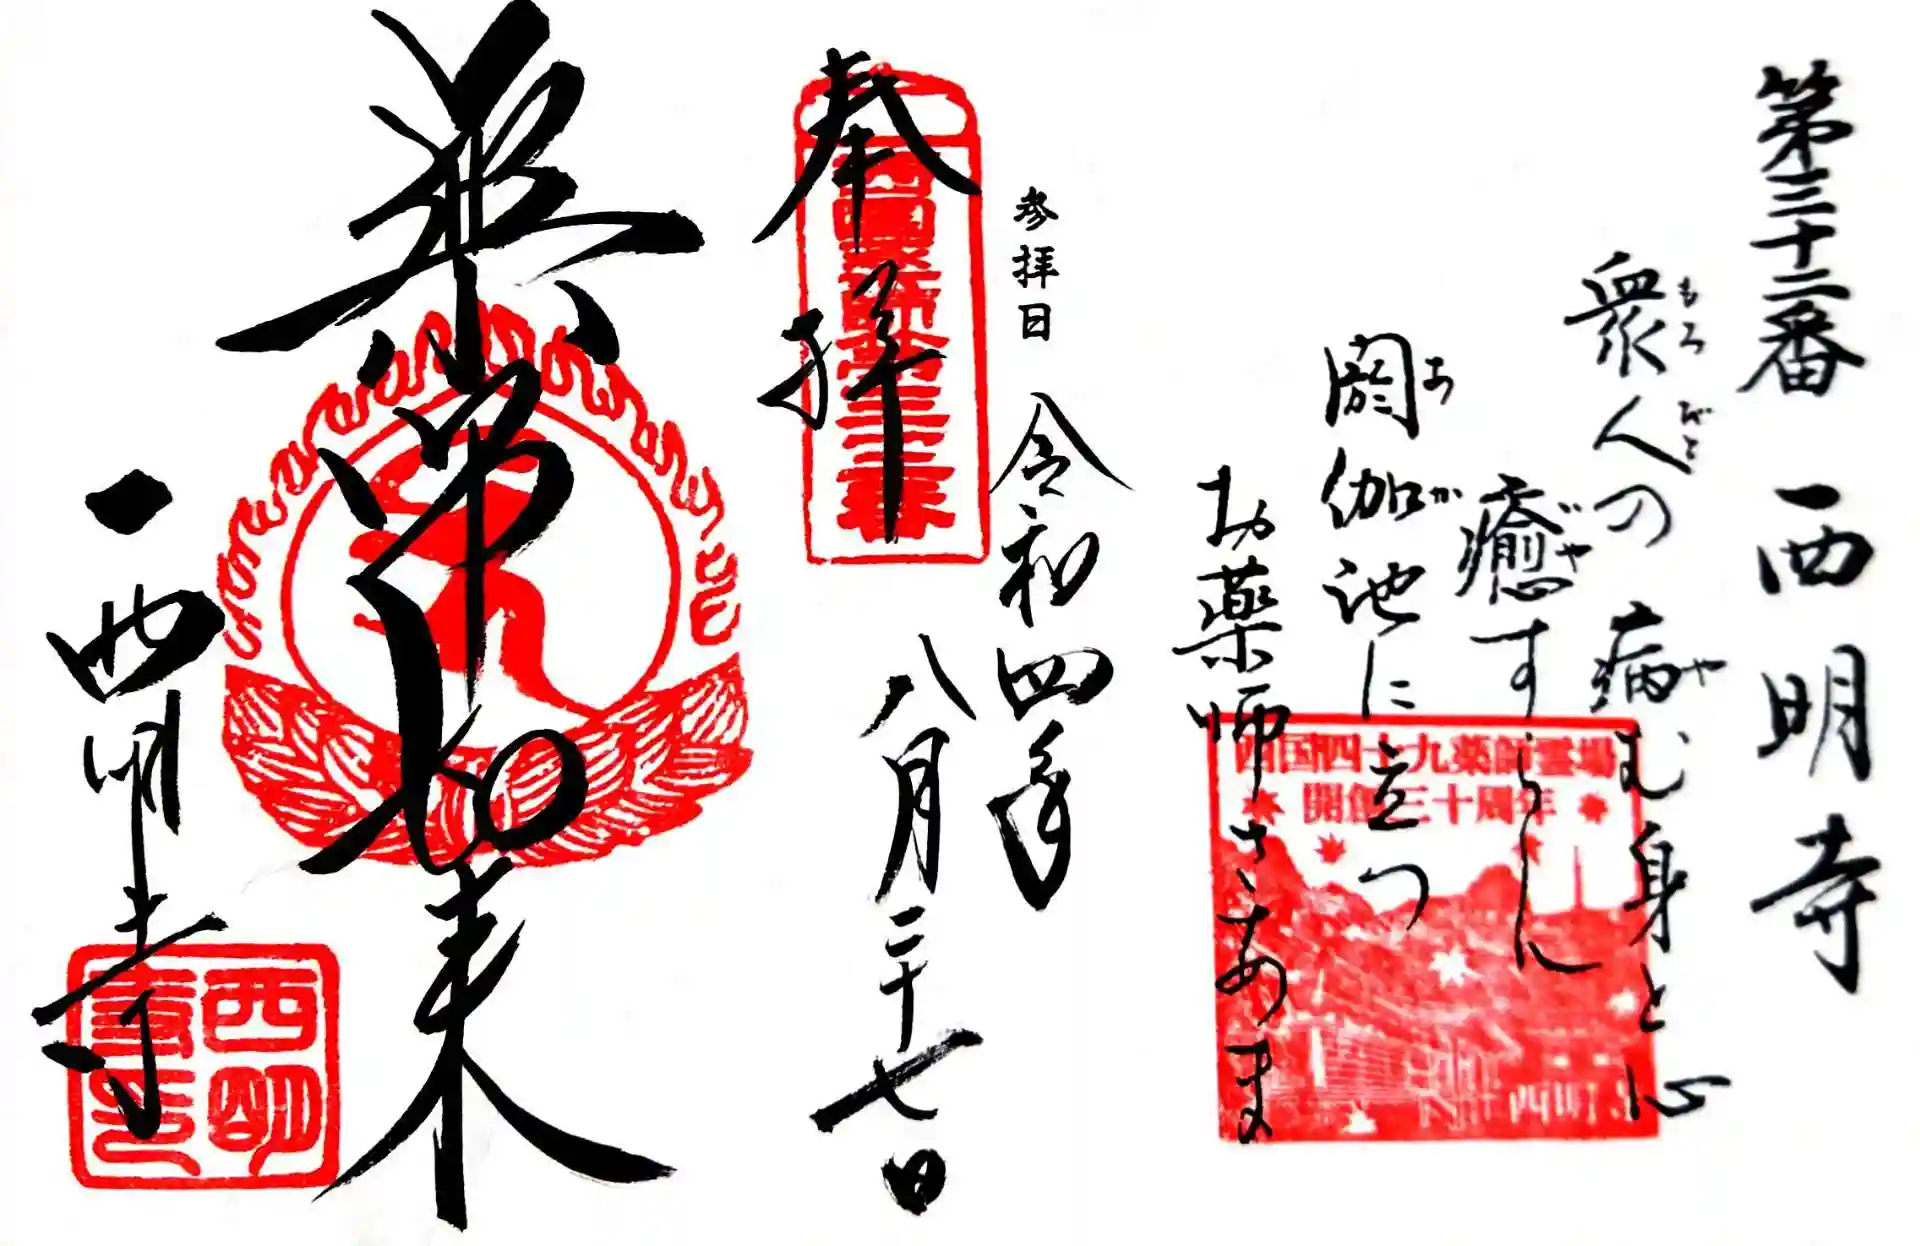 第三十二番 西明寺
衆人の病む身と心
もろびと
や
癒すらん
いや
閼伽池に立つ
あか
お薬師さあま
四国四十九薬師霊場
開創三十周年
参拝日 令和四年
八月二十七日
奉拝
四国薬師第三十二番
薬師如来
西明寺
西明
寺印